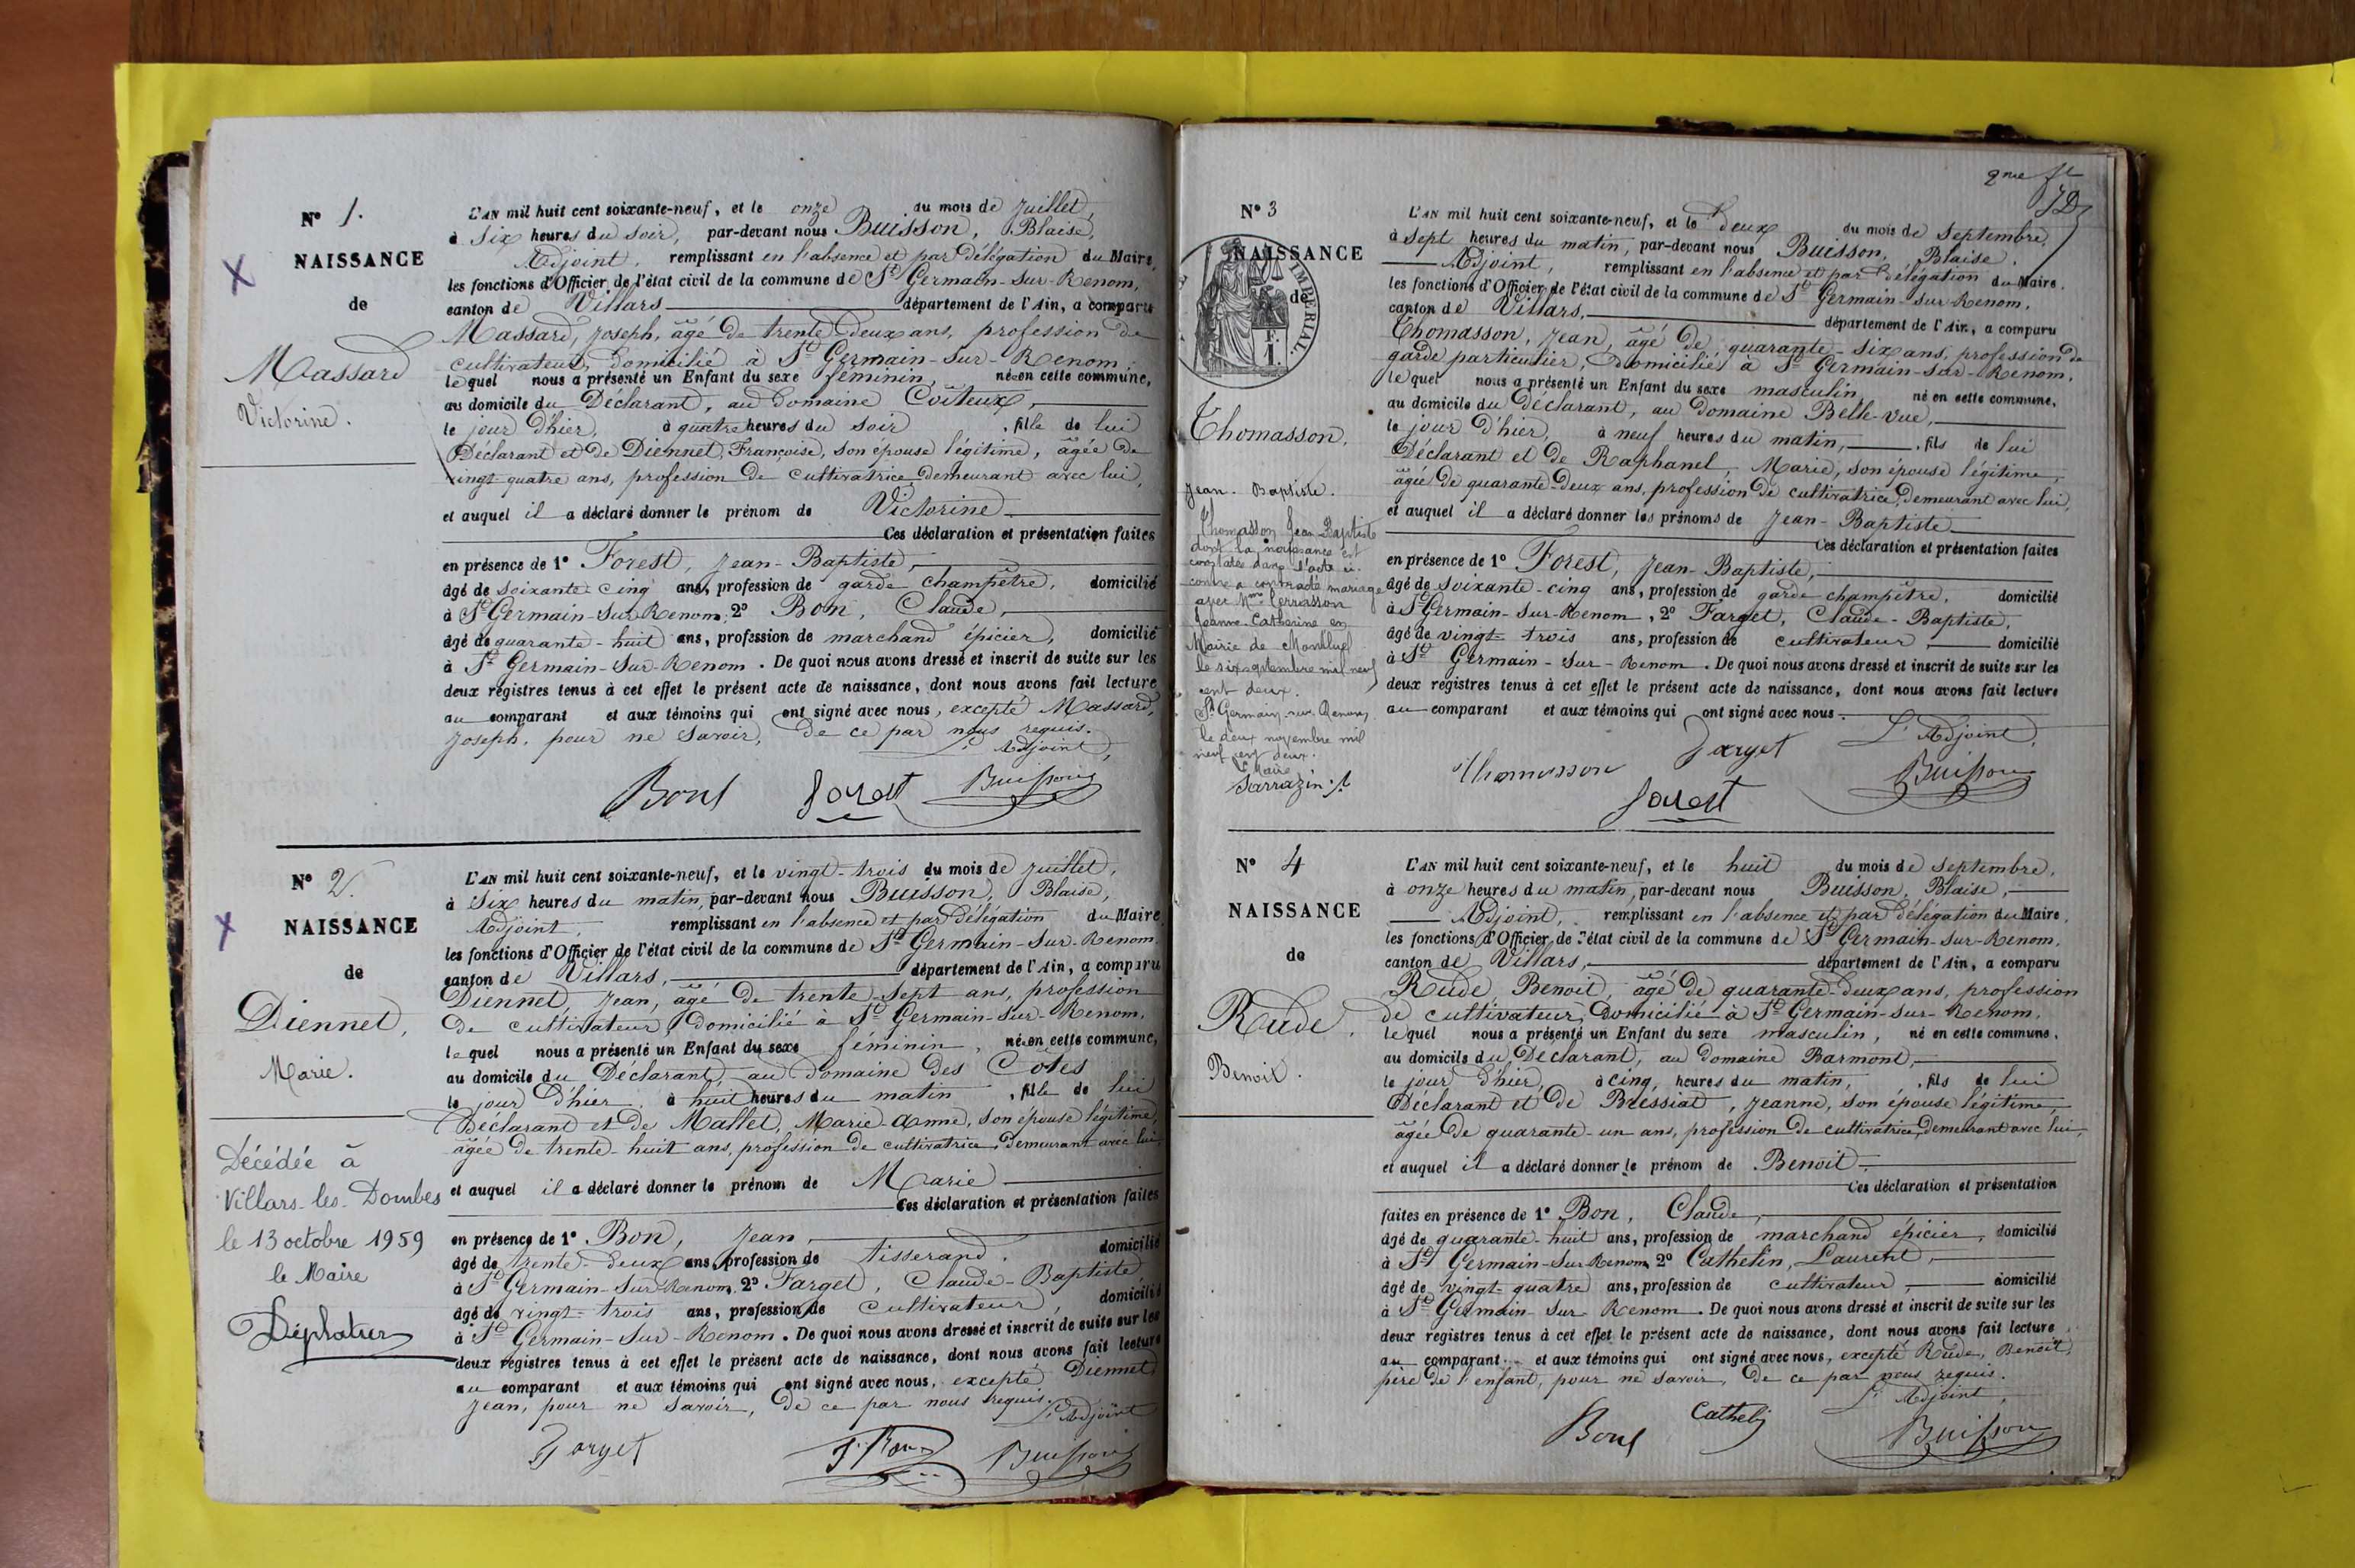 N° 1.
NAISSANCE
de
Massard
Victorine.
L'AN mil huit cent soixante-neuf, et le onze du mois de juillet,
à Six heures du soir, par-devant nous Buisson, Blaise,
Adjoint, remplissant en l'absence et par délégation du Maire,
les fonctions d'Officier de l'état civil de la commune de St Germain-sur-Renom,
canton de Villars département de l'Ain, a comparu
Massard, Joseph, âgé de trente-deux ans, profession de
cultivateur, domicilié à St Germain-sur-Renom,
lequel nous a présenté un Enfant du sexe féminin, née en cette commune,
au domicile du Déclarant, au domaine Coiteux,
le jour d'hier, à quatre heures du soir, fille de lui
Déclarant et de Diennet, Françoise, son épouse légitime, âgée de
vingt-quatre ans, profession de cultivatrice, demeurant avec lui,
et auquel il a déclaré donner le prénom de Victorine
Ces déclaration et présentation faites
en présence de 1° Forest, Jean-Baptiste,
âgé de soixante-cinq ans, profession de garde champêtre, domicilié
à St Germain-sur-Renom, 2° Bon, Claude,
âgé de quarante-huit ans, profession de marchand épicier, domicilié
à St Germain-sur-Renom. De quoi nous avons dressé et inscrit de suite sur les
deux registres tenus à cet effet le présent acte de naissance, dont nous avons fait lecture
au comparant et aux témoins qui ont signé avec nous, excepté Massard,
Joseph, pour ne savoir, de ce par nous requis.
L'Adjoint,
Bon Forest Buisson
N° 2.
NAISSANCE
de
Diennet,
Marie.
Décédée à
Villars-les-Dombes
le 13 octobre 1959
le Maire
L'AN mil huit cent soixante-neuf, et le vingt-trois du mois de juillet,
à Six heures du matin, par-devant nous Buisson, Blaise,
Adjoint, remplissant en l'absence et par délégation du Maire
les fonctions d'Officier de l'état civil de la commune de St Germain-sur-Renom,
canton de Villars, département de l'Ain, a comparu
Diennet, Jean, âgé de trente-sept ans, profession
de cultivateur, domicilié à St Germain-sur-Renom,
lequel nous a présenté un Enfant du sexe féminin, née en cette commune,
au domicile du Déclarant, au domaine des Côtes
le jour d'hier, à huit heures du matin, fille de lui
Déclarant et de Mallet, Marie-Anne, son épouse légitime,
âgée de trente-huit ans, profession de cultivatrice, demeurant avec lui,
et auquel il a déclaré donner le prénom de Marie
Ces déclaration et présentation faites
en présence de 1° Bon, Jean,
âgé de trente-deux ans, profession de tisserand, domicilié
à St Germain-sur-Renom, 2° Farget, Claude-Baptiste
âgé de vingt-trois ans, profession de cultivateur, domicilié
à St Germain-sur-Renom. De quoi nous avons dressé et inscrit de suite sur les
deux registres tenus à cet effet le présent acte de naissance, dont nous avons fait lecture
au comparant et aux témoins qui ont signé avec nous, excepté Diennet
Jean, pour ne savoir, de ce par nous requis.
L'Adjoint
Farget J. Bon Buisson
2me f
N° 3
NAISSANCE
de
IMPÉRIAL.
Thomasson,
Jean-Baptiste.
Thomasson Jean Baptiste
dont la naissance est
constatée dans l'acte ci-
contre a contracté mariage
avec
Jeanne Catherine en
Mairie de Montluel
le six septembre mil neuf
cent deux.
St Germain-sur-Renom
le deux novembre mil
neuf cent deux.
Le Maire
Sarrazin
L'AN mil huit cent soixante-neuf, et le deux du mois de septembre,
à sept heures du matin, par-devant nous Buisson, Blaise,
Adjoint, remplissant en l'absence et par délégation du Maire,
les fonctions d'Officier de l'état civil de la commune de St Germain-sur-Renom,
canton de Villars, département de l'Ain, a comparu
Thomasson, Jean, âgé de quarante-six ans, profession de
garde particulier, domicilié à St Germain-sur-Renom,
lequel nous a présenté un Enfant du sexe masculin, né en cette commune,
au domicile du déclarant, au domaine Belle-vue,
le jour d'hier, à neuf heures du matin, fils de lui
Déclarant et de Raphanel, Marie, son épouse légitime,
âgée de quarante-deux ans, profession de cultivatrice, demeurant avec lui,
et auquel il a déclaré donner les prénoms de Jean-Baptiste
Ces déclaration et présentation faites
en présence de 1° Forest, Jean-Baptiste,
âgé de soixante-cinq ans, profession de garde champêtre, domicilié
à St Germain-sur-Renom, 2° Farget, Claude-Baptiste,
âgé de vingt-trois ans, profession de cultivateur, domicilié
à St Germain-sur-Renom. De quoi nous avons dressé et inscrit de suite sur les
deux registres tenus à cet effet le présent acte de naissance, dont nous avons fait lecture
au comparant et aux témoins qui ont signé avec nous.
L'Adjoint,
Thomasson Farget Buisson
Forest
N° 4
NAISSANCE
de
Rude,
Benoit.
L'AN mil huit cent soixante-neuf, et le huit du mois de septembre,
à onze heures du matin, par-devant nous Buisson, Blaise,
Adjoint, remplissant en l'absence et par délégation du Maire,
les fonctions d'Officier de l'état civil de la commune de St Germain-sur-Renom,
canton de Villars, département de l'Ain, a comparu
Rude, Benoit, âgé de quarante-deux ans, profession
de cultivateur, domicilié à St Germain-sur-Renom,
lequel nous a présenté un Enfant du sexe masculin, né en cette commune,
au domicile du Déclarant, au domaine Barmont,
le jour d'hier, à cinq heures du matin, fils de lui
Déclarant et de Bressiat, Jeanne, son épouse légitime,
âgée de quarante-un ans, profession de cultivatrice, demeurant avec lui,
et auquel il a déclaré donner le prénom de Benoit.
Ces déclaration et présentation
faites en présence de 1° Bon, Claude,
âgé de quarante-huit ans, profession de marchand épicier, domicilié
à St Germain-sur-Renom, 2° Cathelin, Laurent,
âgé de vingt-quatre ans, profession de cultivateur, domicilié
à St Germain-sur-Renom. De quoi nous avons dressé et inscrit de suite sur les
deux registres tenus à cet effet le présent acte de naissance, dont nous avons fait lecture
au comparant et aux témoins qui ont signé avec nous, excepté Rude, Benoit,
père de l'enfant, pour ne savoir, de ce par nous requis.
L'Adjoint,
Bon Cathelin Buisson